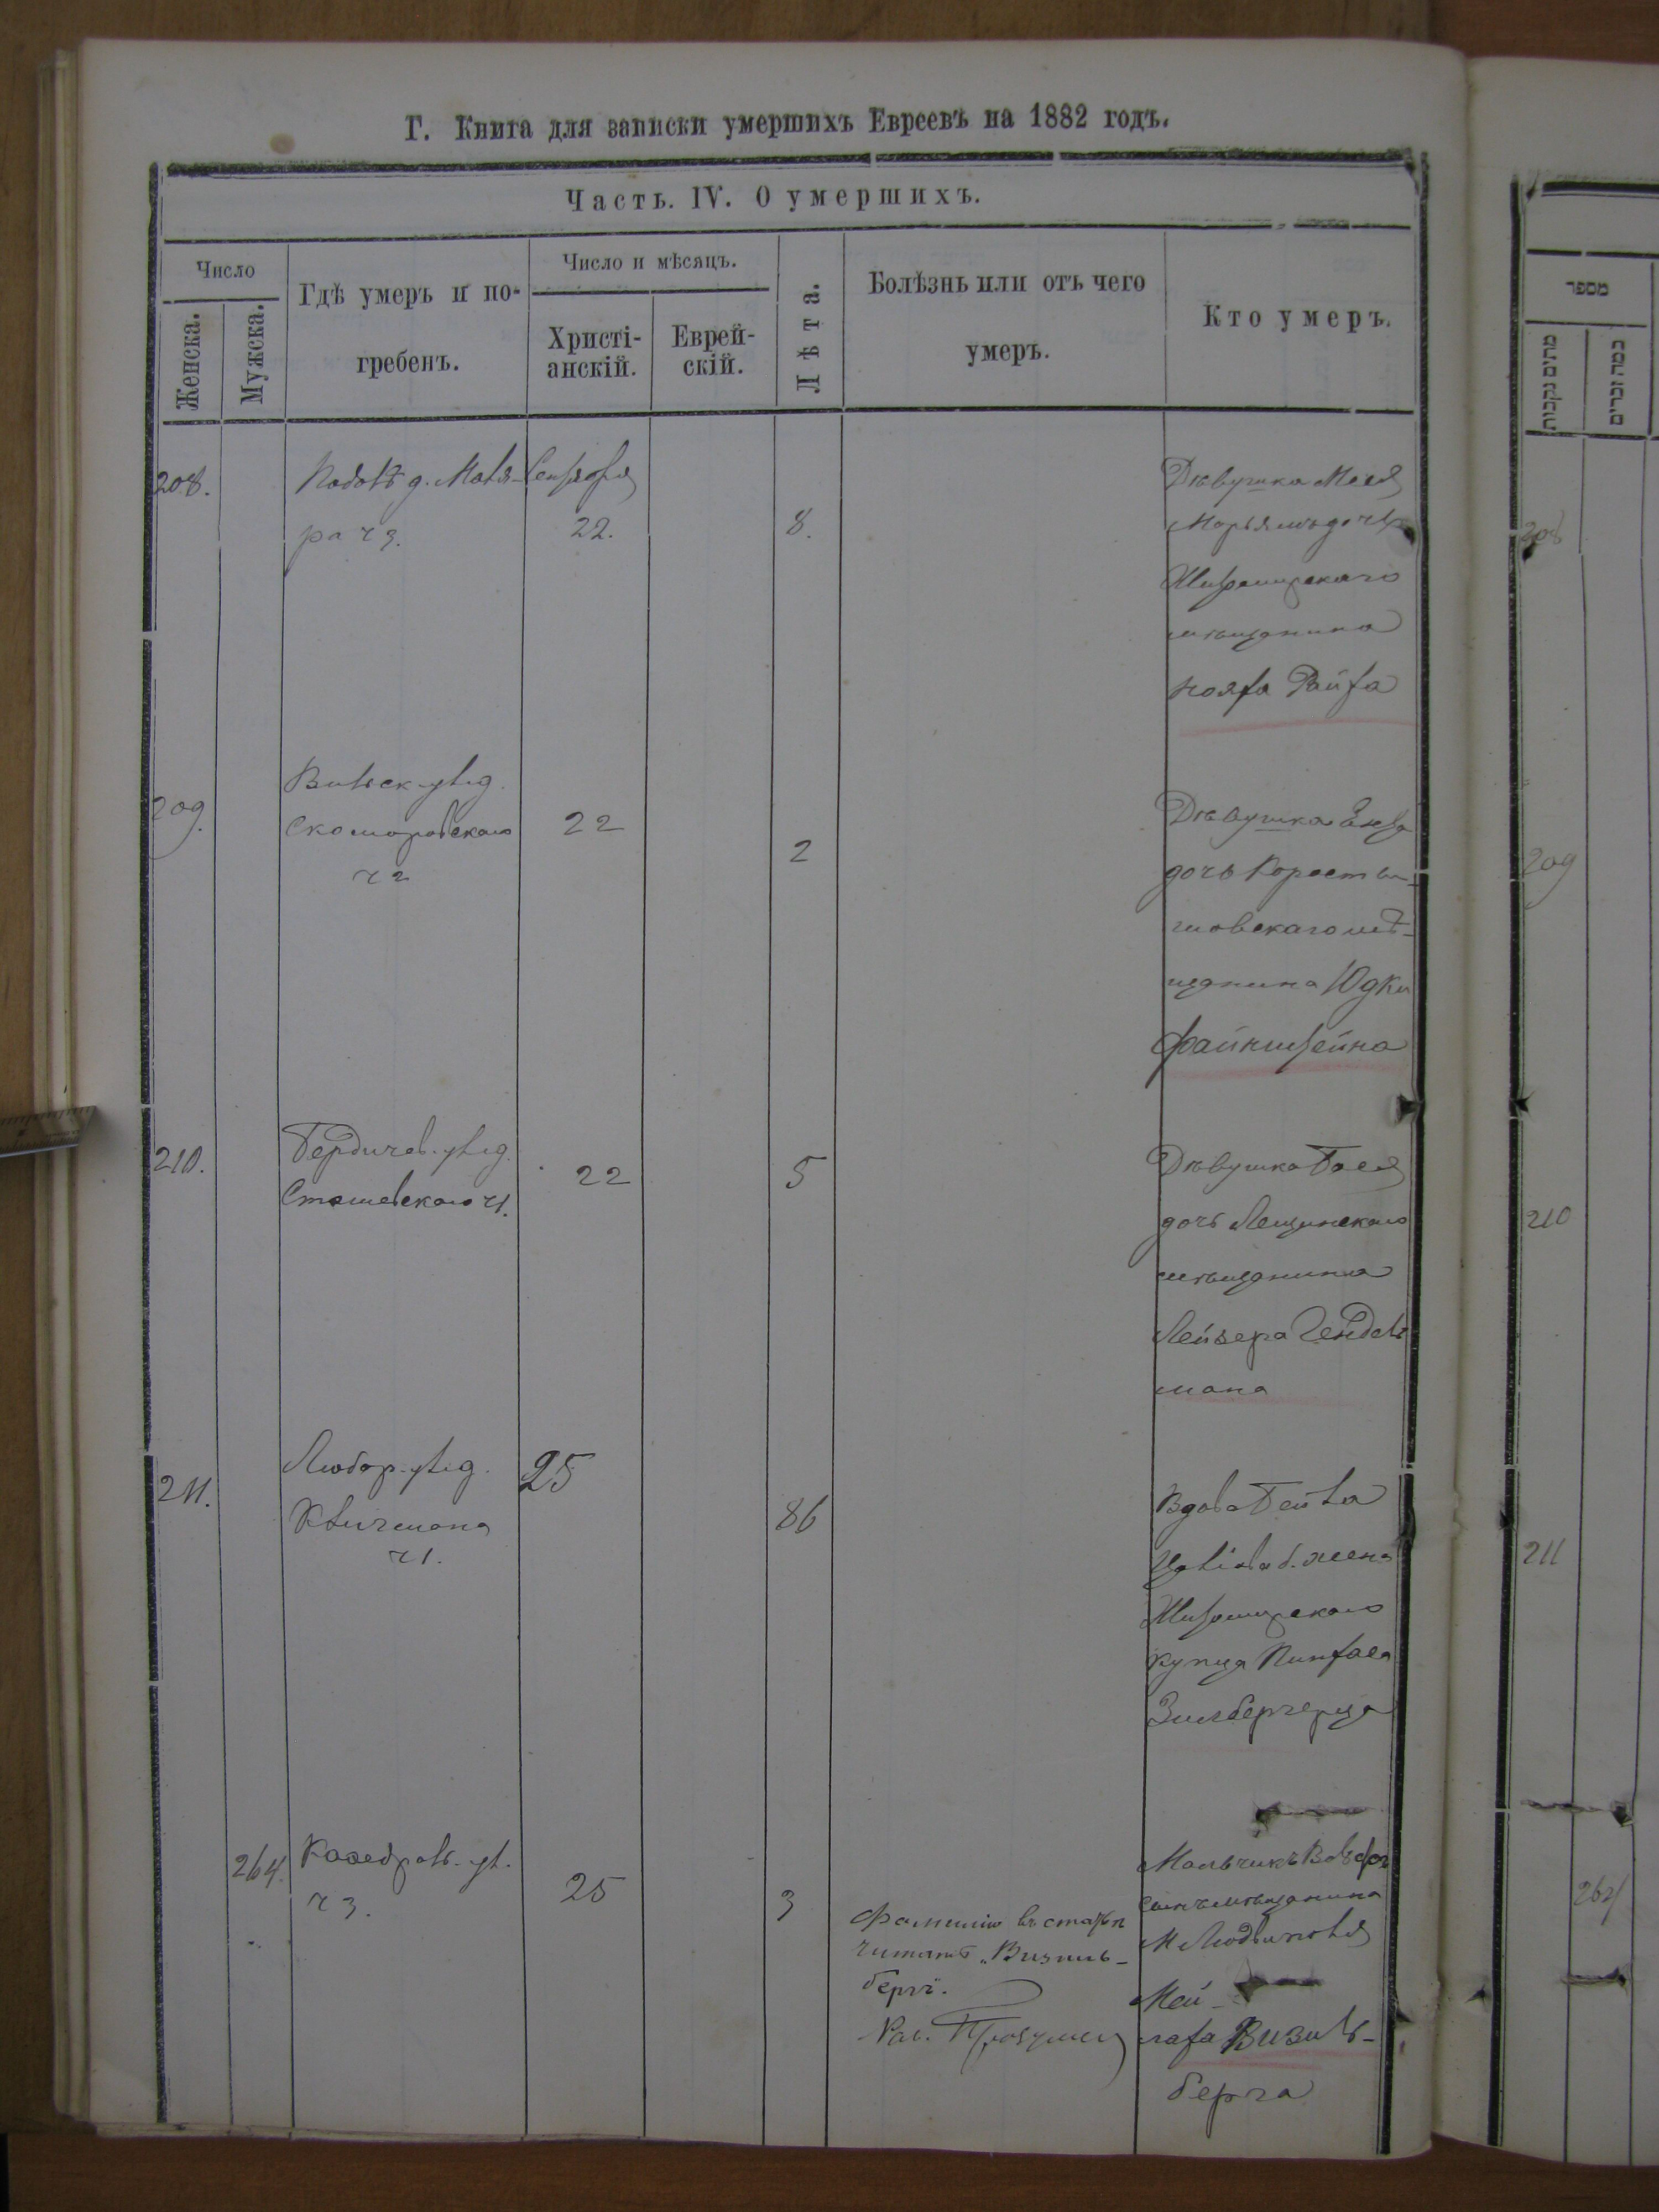 Г. Книга для записки умершихъ Евреевъ на 1882 годъ.
Часть. IV. О умершихъ.
Число
Женска.
Мужска.
Гдѣ умеръ и по-
гребенъ.
Число и мѣсяцъ.
Христі-
анскій.
Еврей-
скій.
Лѣта.
Болѣзнь или отъ чего
умеръ.
Кто умеръ.
208.
д.
ра ч 3.
Сентября
22.
8.
Дѣвушка
Марьямъ дочь
Житомирскаго
мѣщанина
Райфа
209.
Скоморовскаго
ч 2
22
2
Дѣвушка
дочь Коросты-
шовскаго мѣ-
щанина Юдки
Файнштейна
210.
Бердичев.
Сташевскаго ч 1.
22
5
Дѣвушка Бася
дочь Лещинскаго
мѣщанина
Лейзера Гендель
мана
211.
Любар.
Клигмана
ч 1.
25
86
Вдова Бейла
б. жена
Житомирскаго
купца Пинхаса
Зильбергерца
264.
Каѳедраль. ул.
ч 3.
25
3
Фамилію въ статьѣ
читать „Визиль-
бергъ".
Рав.
Мальчикъ Вольфъ
сынъ мѣщанина
м Любинполя
Мей-
лаха Визиль-
берга
מספר
מתים נקבות
כמה זכרים
208
209
210
211
264